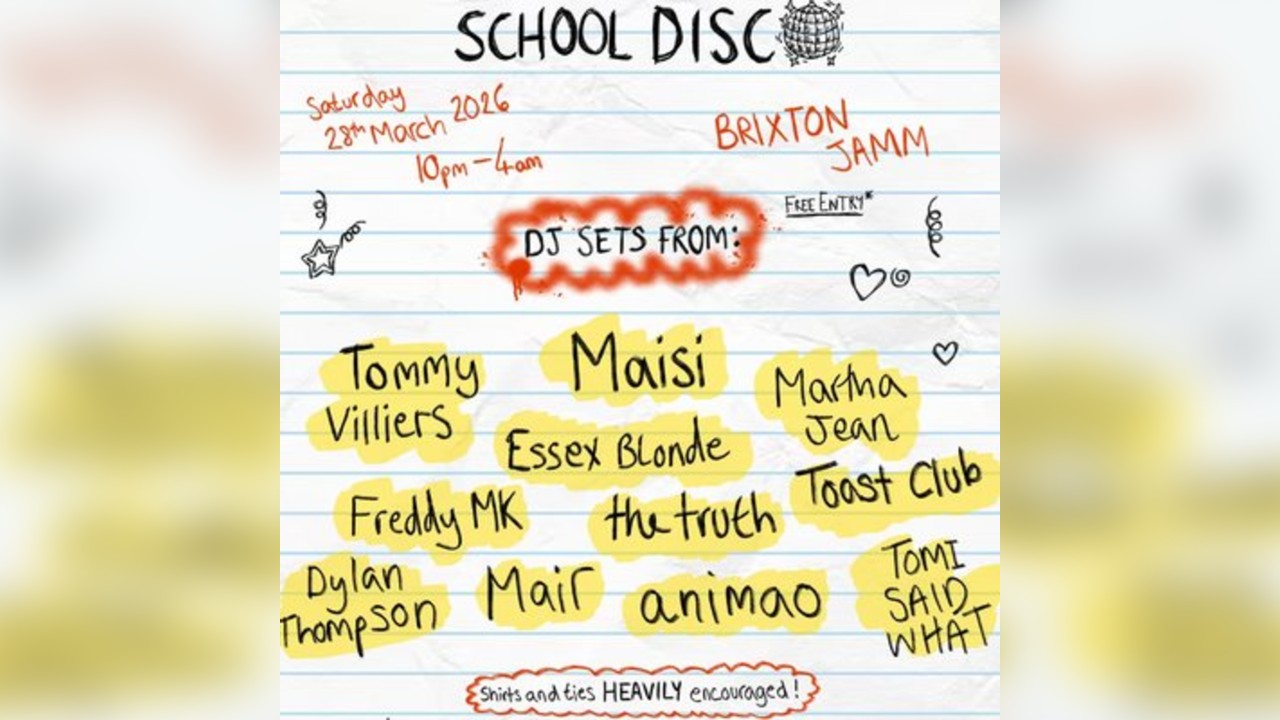 SCHOOL DISCO
Saturday
28th March 2026
10pm - 4am
BRIXTON
JAMM
FREE ENTRY*
DJ SETS FROM:
Tommy
Villiers
Maisi
Martha
Jean
Essex Blonde
Toast Club
Freddy MK
the truth
Dylan
Thompson
Mair
animao
TOMI
SAID
WHAT
Shirts and ties HEAVILY encouraged!